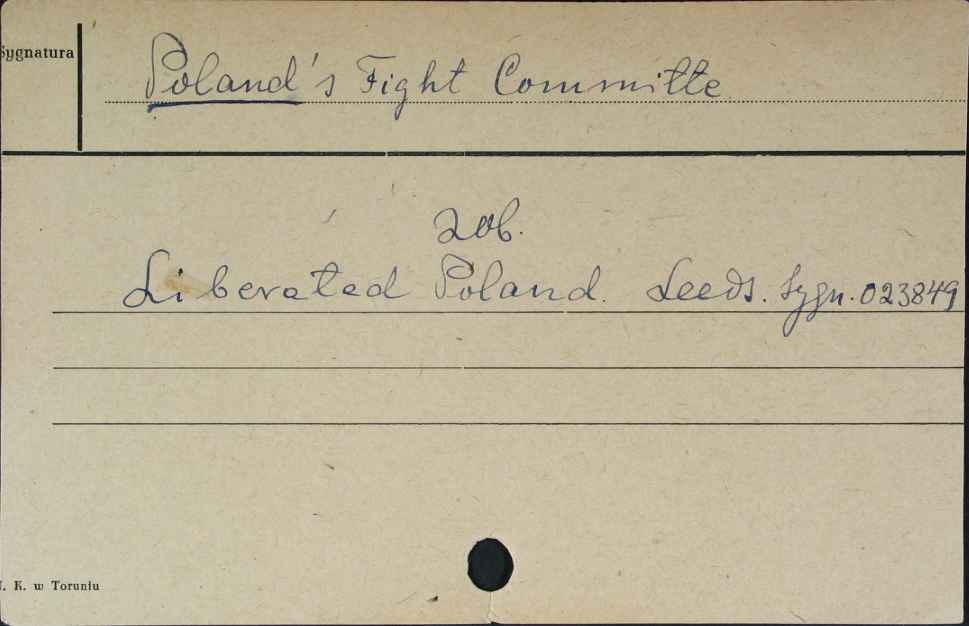 Sygnatura
Poland's Fight Committe
zob.
Liberated Poland. Leeds. Sygn. 023849
K. w Toruniu